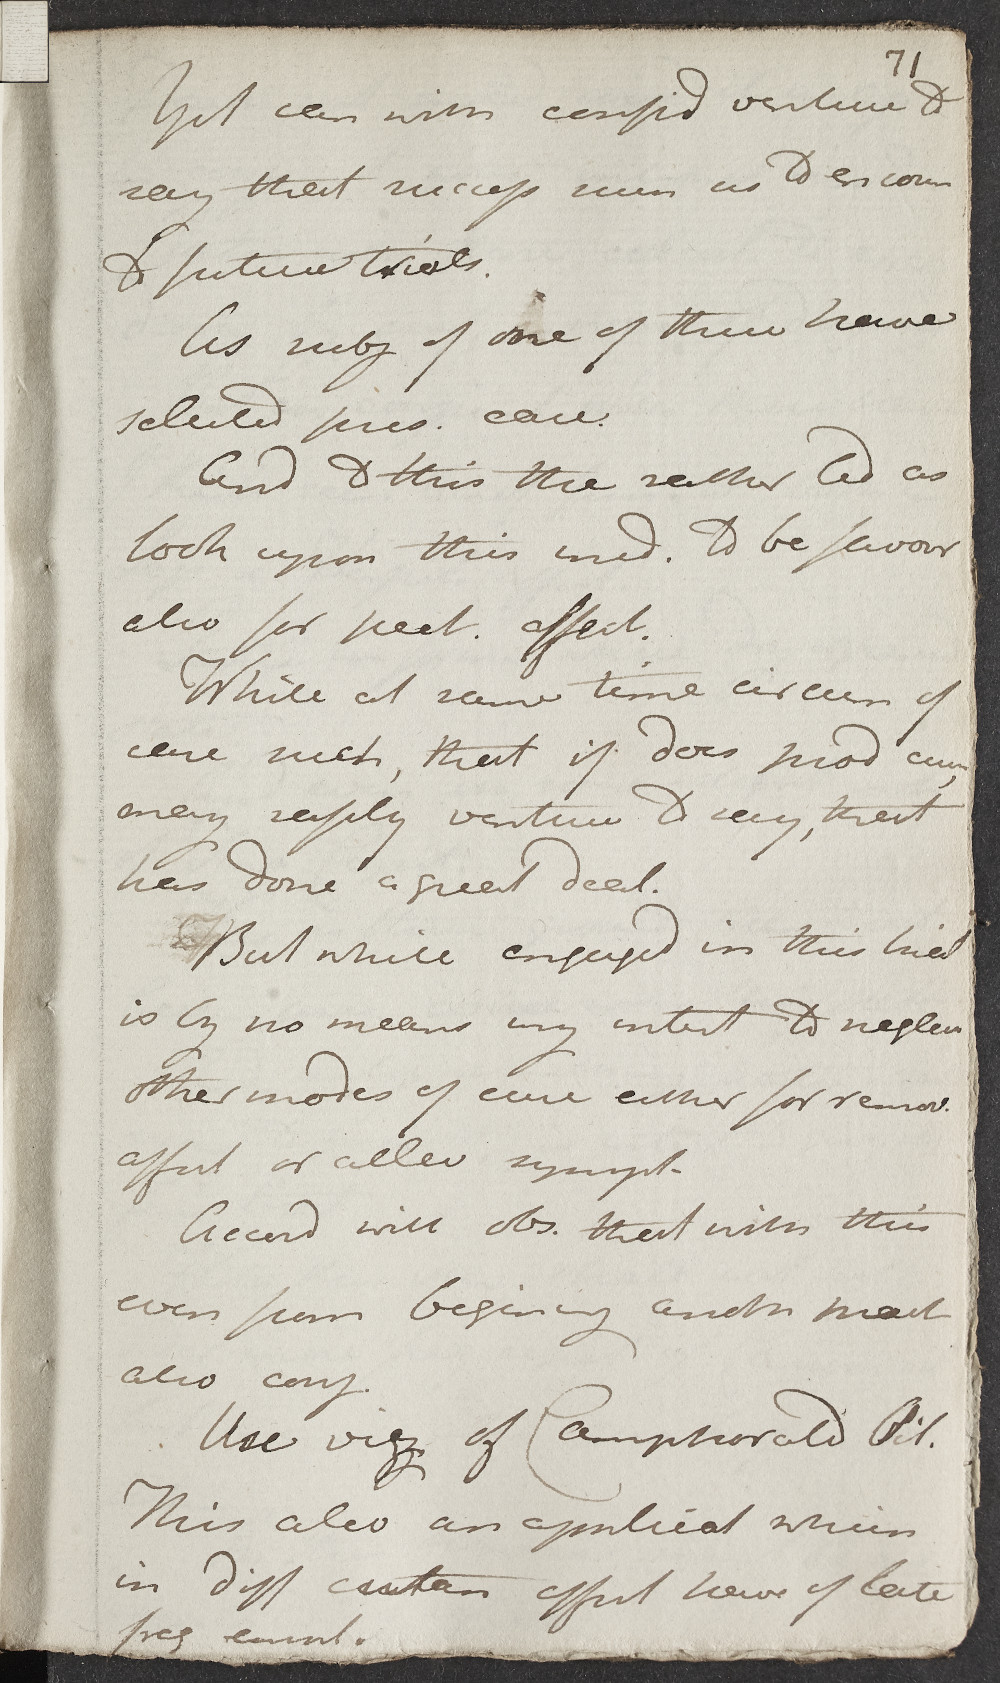 71
Yet can with confid venture to
say that success such as to encour
to future trials.
As subj of one of these have
selected pres. case.
And to this the rather led as
look upon this med. to be favour
also for pect. affect.
While at same time circum of
case such, that if does prod cure,
may safely venture to say, that
has done a great deal.
But while engaged in this trial
is by no means my intent to neglect
other modes of cure either for remov.
affect or allev sympt.
Accord will obs. that with this
even from begining anoth pract
also conj.
Use viz of Camphorald Oil.
This also an applicat which
in diff cutan affect have of late
freq empl.